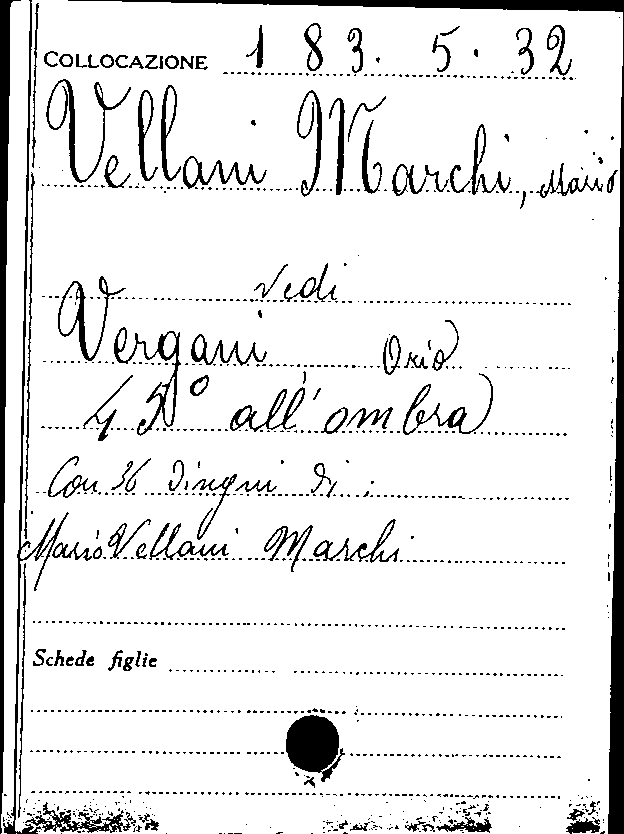 COLLOCAZIONE 183. 5. 32
Vellani Marchi, Mario
Vedi
Vergani Orio
45° all'ombra
Con 36 disegni di:
Mario Vellani Marchi
Schede figlie